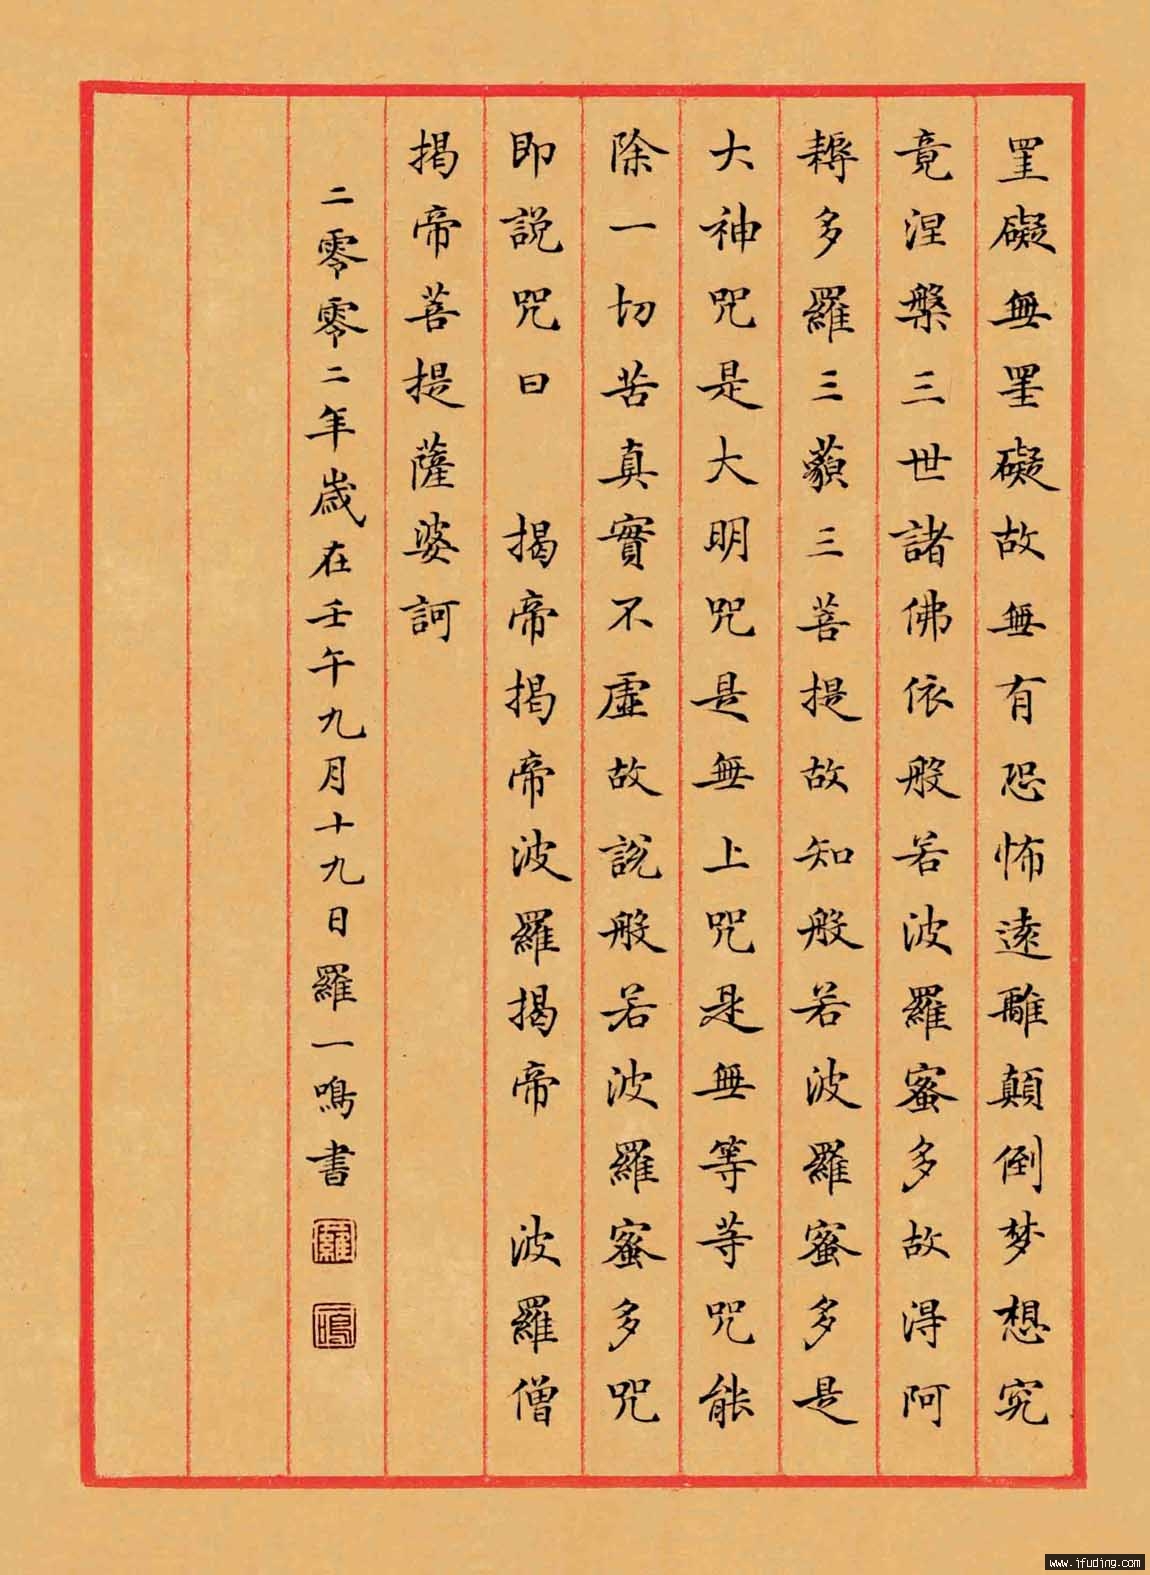 罣礙無罣礙故無有恐怖遠離顛倒梦想究
竟涅槃三世諸佛依般若波羅蜜多故得阿
耨多羅三藐三菩提故知般若波羅蜜多是
大神咒是大明咒是無上咒是無等等咒能
除一切苦真實不虛故說般若波羅蜜多咒
即說咒曰 揭帝揭帝波羅揭帝 波羅僧
揭帝菩提薩婆訶
二零零二年歲在壬午九月十九日羅一鳴書
羅
一鳴
www.jfuding.com